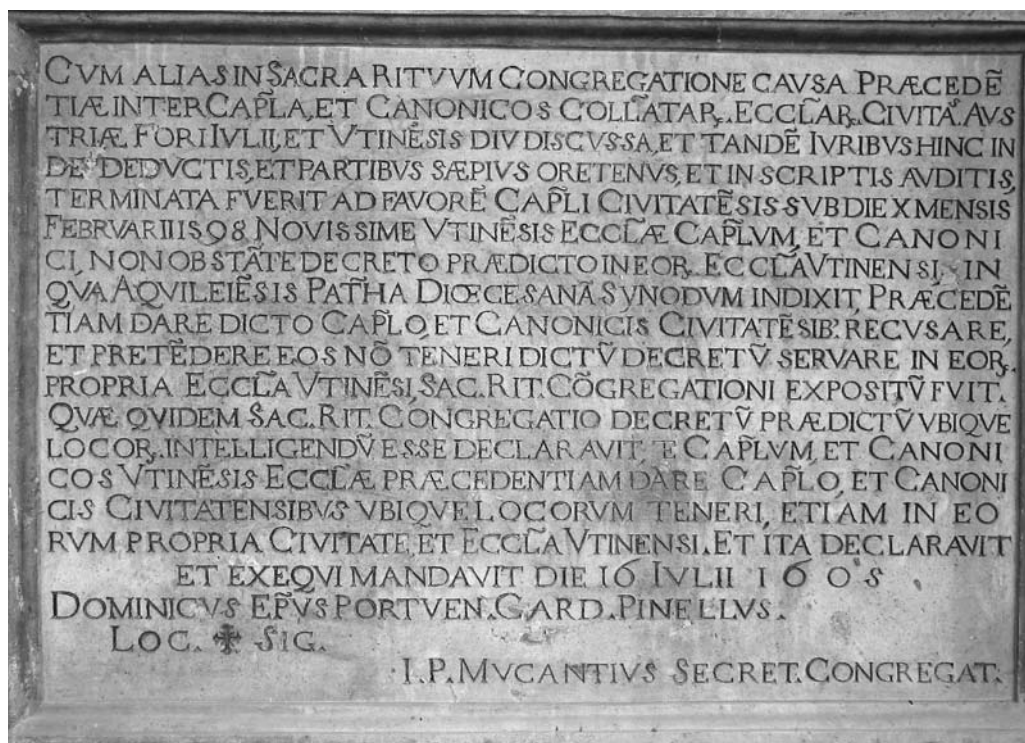 CVM ALIAS IN SACRA RITVVM CONGREGATIONE CAVSA PRÆCEDẼ
TIÆ INTER CAPL̃A, ET CANONICOS COLL̃ATAR. ECCL̃AR. CIVITA. AVS
TRIÆ FORI IVLII, ET VTINẼSIS DIV DISCVSSA, ET TANDẼ IVRIBVS HINC IN
DE DEDVCTIS, ET PARTIBVS SÆPIVS ORETENVS, ET IN SCRIPTIS AVDITIS,
TERMINATA FVERIT AD FAVORẼ CAPL̃I CIVITATẼSIS SVB DIE X MENSIS
FEBRVARII 1598 NOVISSIME VTINẼSIS ECCL̃Æ CAPL̃VM, ET CANONI
CI, NON OBSTÃTE DECRETO PRÆDICTO IN EOR. ECCL̃A VTINENSI, IN
QVA AQVILEIẼSIS PATH̃A DIŒCESANÃ SYNODVM INDIXIT, PRÆCEDẼ
TIAM DARE DICTO CAPL̃O, ET CANONICIS CIVITATẼSIB. RECVSARE,
ET PRETẼDERE EOS NÕ TENERI DICTṼ DECRETṼ SERVARE IN EOR.
PROPRIA ECCL̃A VTINẼSI, SAC. RIT. CÕGREGATIONI EXPOSITṼ FVIT.
QVÆ QVIDEM SAC. RIT. CONGREGATIO DECRETṼ PRÆDICTṼ VBIQVE
LOCOR. INTELLIGENDṼ ESSE DECLARAVIT, E CAPL̃VM, ET CANONI
COS VTINẼSIS ECCL̃Æ PRÆCEDENTIAM DARE CAPL̃O, ET CANONI
CIS CIVITATENSIBVS VBIQVE LOCORVM TENERI, ETIAM IN EO
RVM PROPRIA CIVITATE, ET ECCL̃A VTINENSI. ET ITA DECLARAVIT
ET EXEQVI MANDAVIT DIE 16 IVLII 1605
DOMINICVS EP̃VS PORTVEN. CARD. PINELLVS.
LOC. ✠ SIG.
I. P. MVCANTIVS SECRET. CONGREGAT.